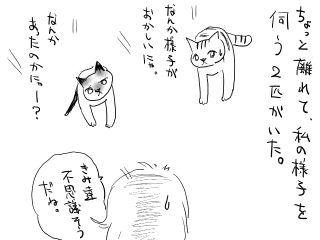 ちょっと離れて、私の様子を
伺う2匹がいた。
なんか様子が
おかしいにゃ。
なんか
あったのかにゃー？
きみ達
不思議そう
だね。